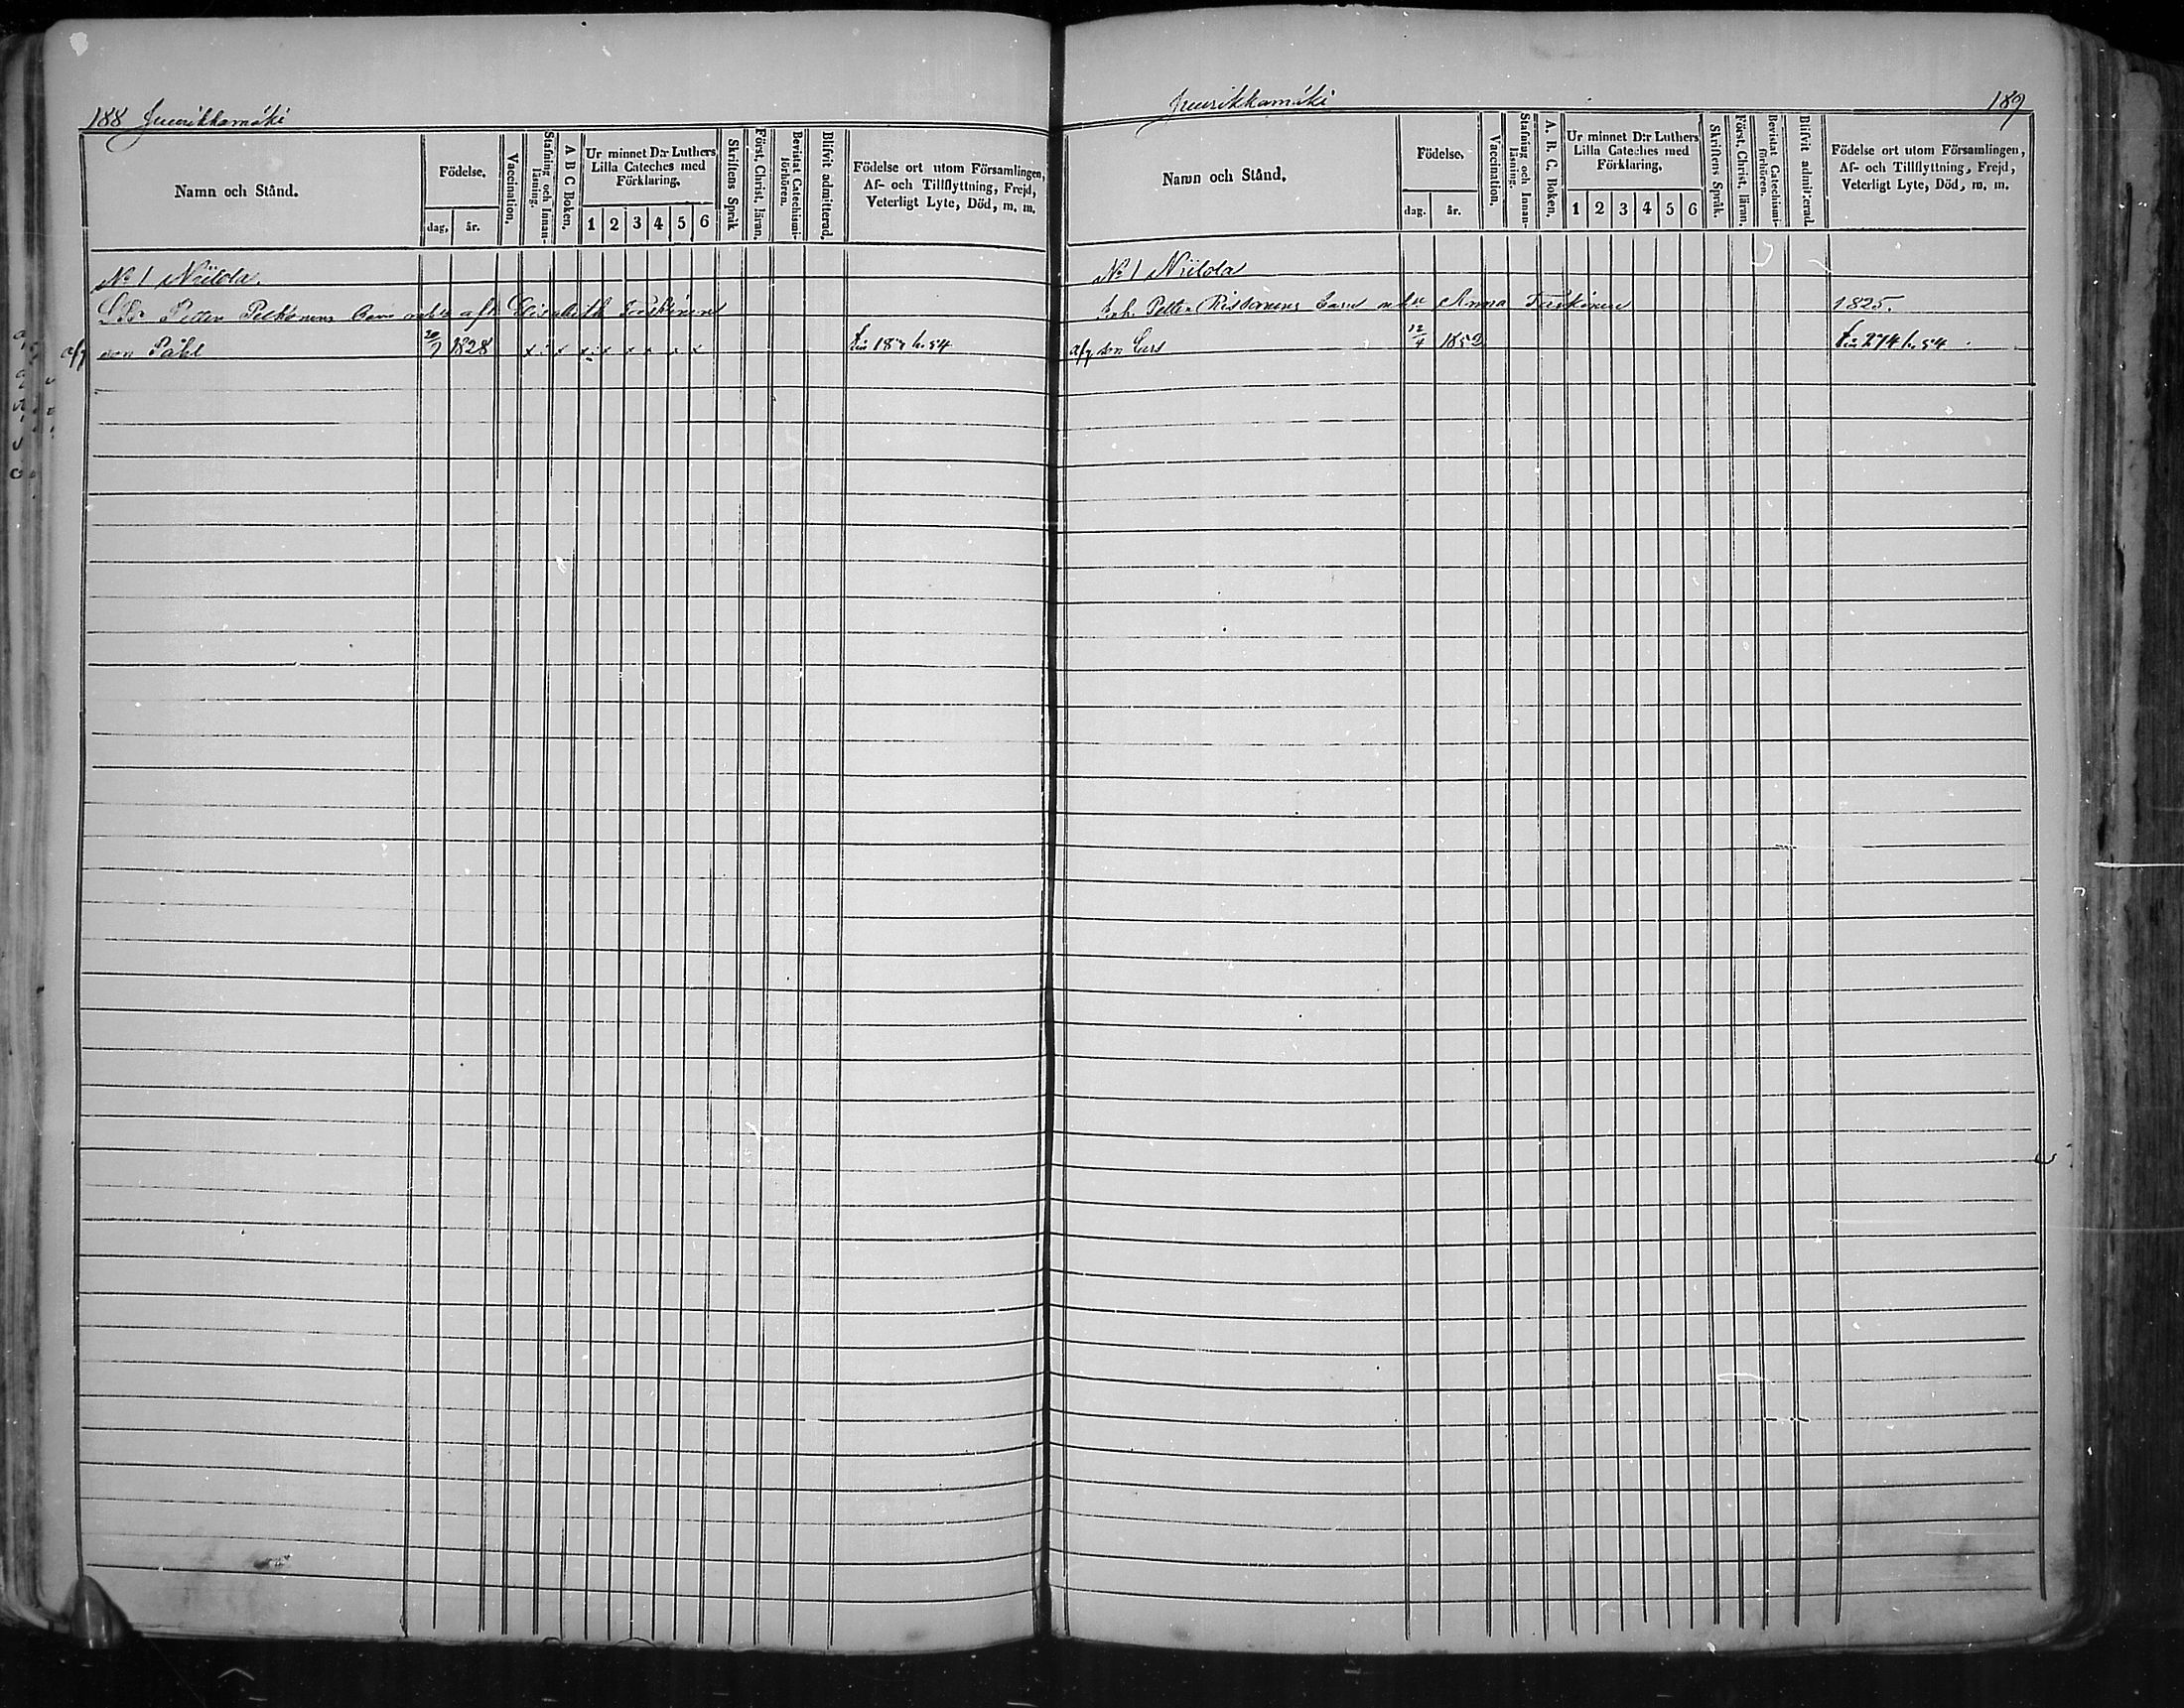 188 Juurikkamäki
Namn och Stånd.
Födelse.
dag.
år.
Vaccination.
Stafning och Innanläsning.
A B C Boken.
Ur minnet D:r Luthers Lilla Cateches med Förklaring.
1 2 3 4 5 6
Skriftens Språk
Först. Christ. läran.
Bevistat Catechismi-förhören.
Blifvit admitterad.
Födelse ort utom Församlingen,
Af- och Tillflyttning, Frejd,
Veterligt Lyte, Död, m. m.
No 1 Niilola.
Petter Pelkonens Barn af Elisabeth
afg son Påhl 1828 x x x x x x x x
Juurikkamäki 189
Namn och Stånd.
Födelse.
dag.
år.
Vaccination.
Stafning och Innanläsning.
A. B. C. Boken.
Ur minnet D:r Luthers Lilla Cateches med Förklaring.
1 2 3 4 5 6
Skriftens Språk.
Först. Christ. läran.
Bevistat Catechismi-förhören.
Blifvit admitterad.
Födelse ort utom Församlingen,
Af- och Tillflyttning, Frejd,
Veterligt Lyte, Död, m. m.
No 1 Niilola
Inh. Petter Ristonens Barn Anna 1825.
afg son Lars 12/4 1852 274